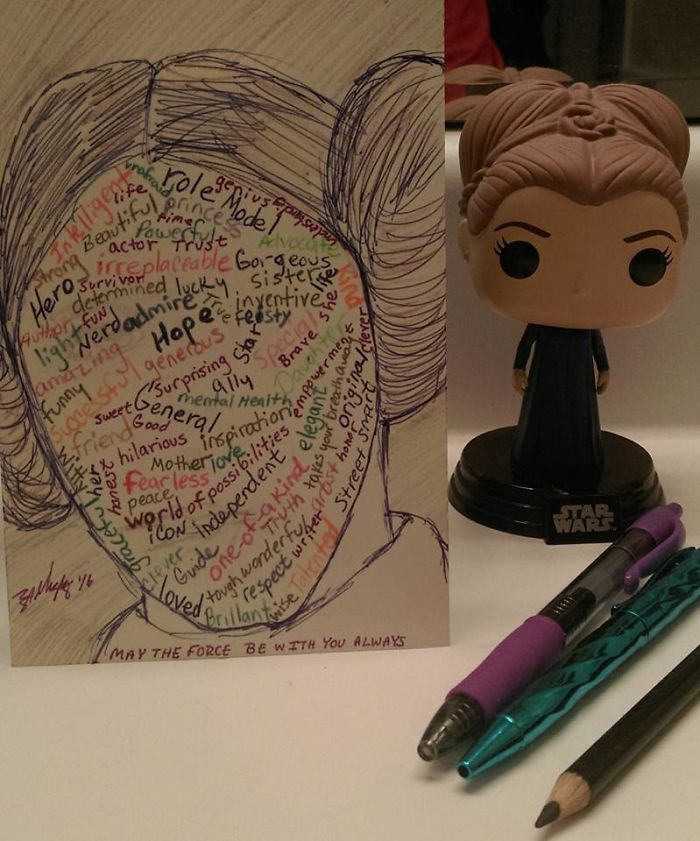 unafraid
role Model
genius
Intelligent
life
princess
Beautiful
time
Powerful
Advocate
actor
Trust
strong
irreplaceable
Gorgeous
kind
Hero
survivor
determined
lucky
sister
life
Author
FUN
Nerd
admire
True
inventive
she
light
Hope
feisty
amazing
generous
Star
special
Brave
clever
funny
successful
surprising
ally
Daughter
empowerment
original
sweet
General
mental Health
elegant
takes your breath away
friend
Good
inspiration
honor
street smart
witty
hilarious
Mother
love
world of possibilities
her
honest
fearless
Independent
peace
one-of-a-kind
artist
grace
icon
Truth
writer
clever
Guide
wonderful
Talented
loved
tough
respect
Brilliant
wise
'16
MAY THE FORCE BE WITH YOU ALWAYS
STAR
WARS